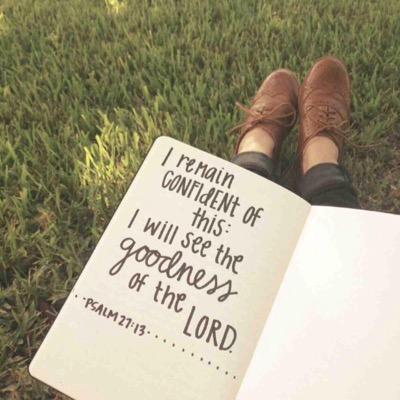 I remain
CONFIDENT of
this:
I will see the
goodness
of the LORD.
-PSALM 27:13